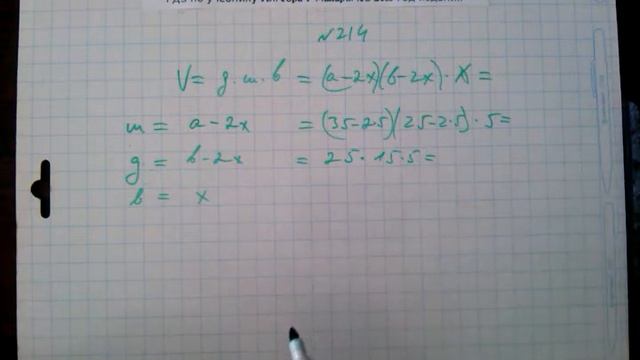 №214
V = g · m · b = (a-2x)(b-2x) · x =
m = a-2x = (35-2·5)(25-2·5) · 5=
g = b-2x = 25 · 15 · 5=
b = x